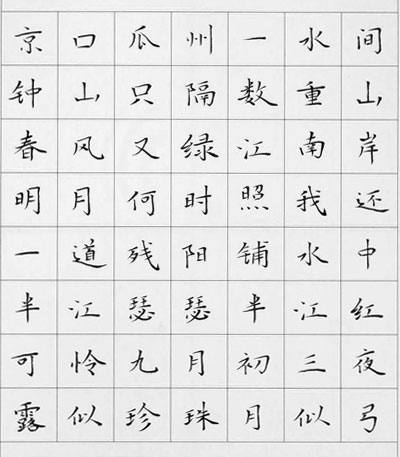 京口瓜州一水间
钟山只隔数重山
春风又绿江南岸
明月何时照我还
一道残阳铺水中
半江瑟瑟半江红
可怜九月初三夜
露似珍珠月似弓